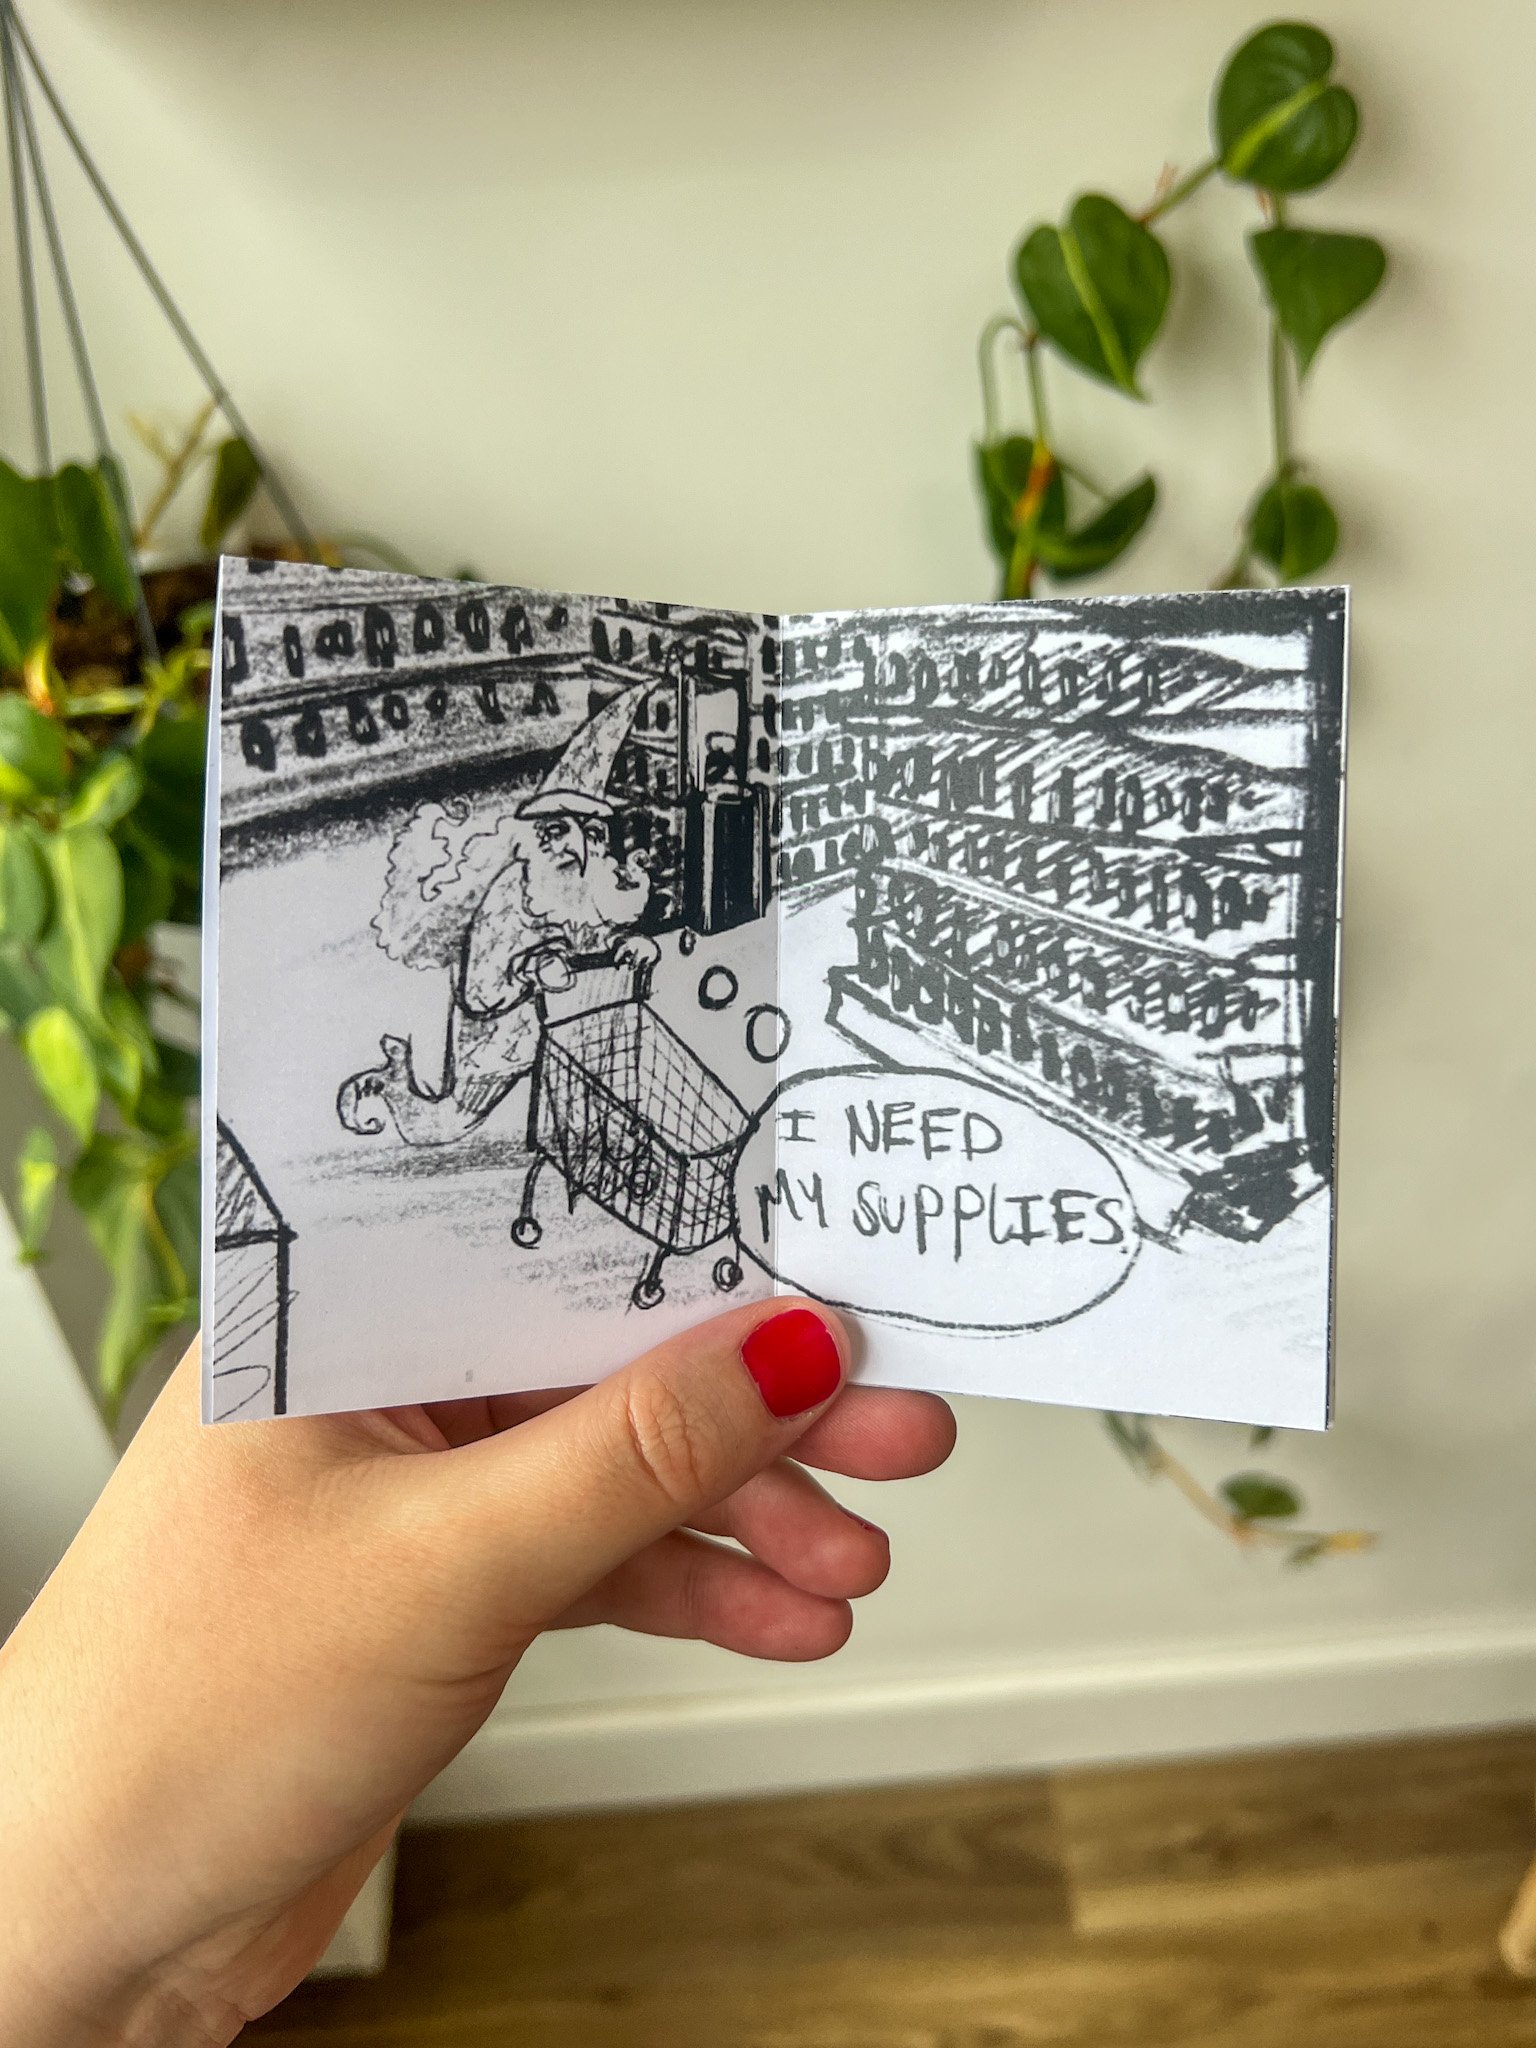 I NEED
MY SUPPLIES.